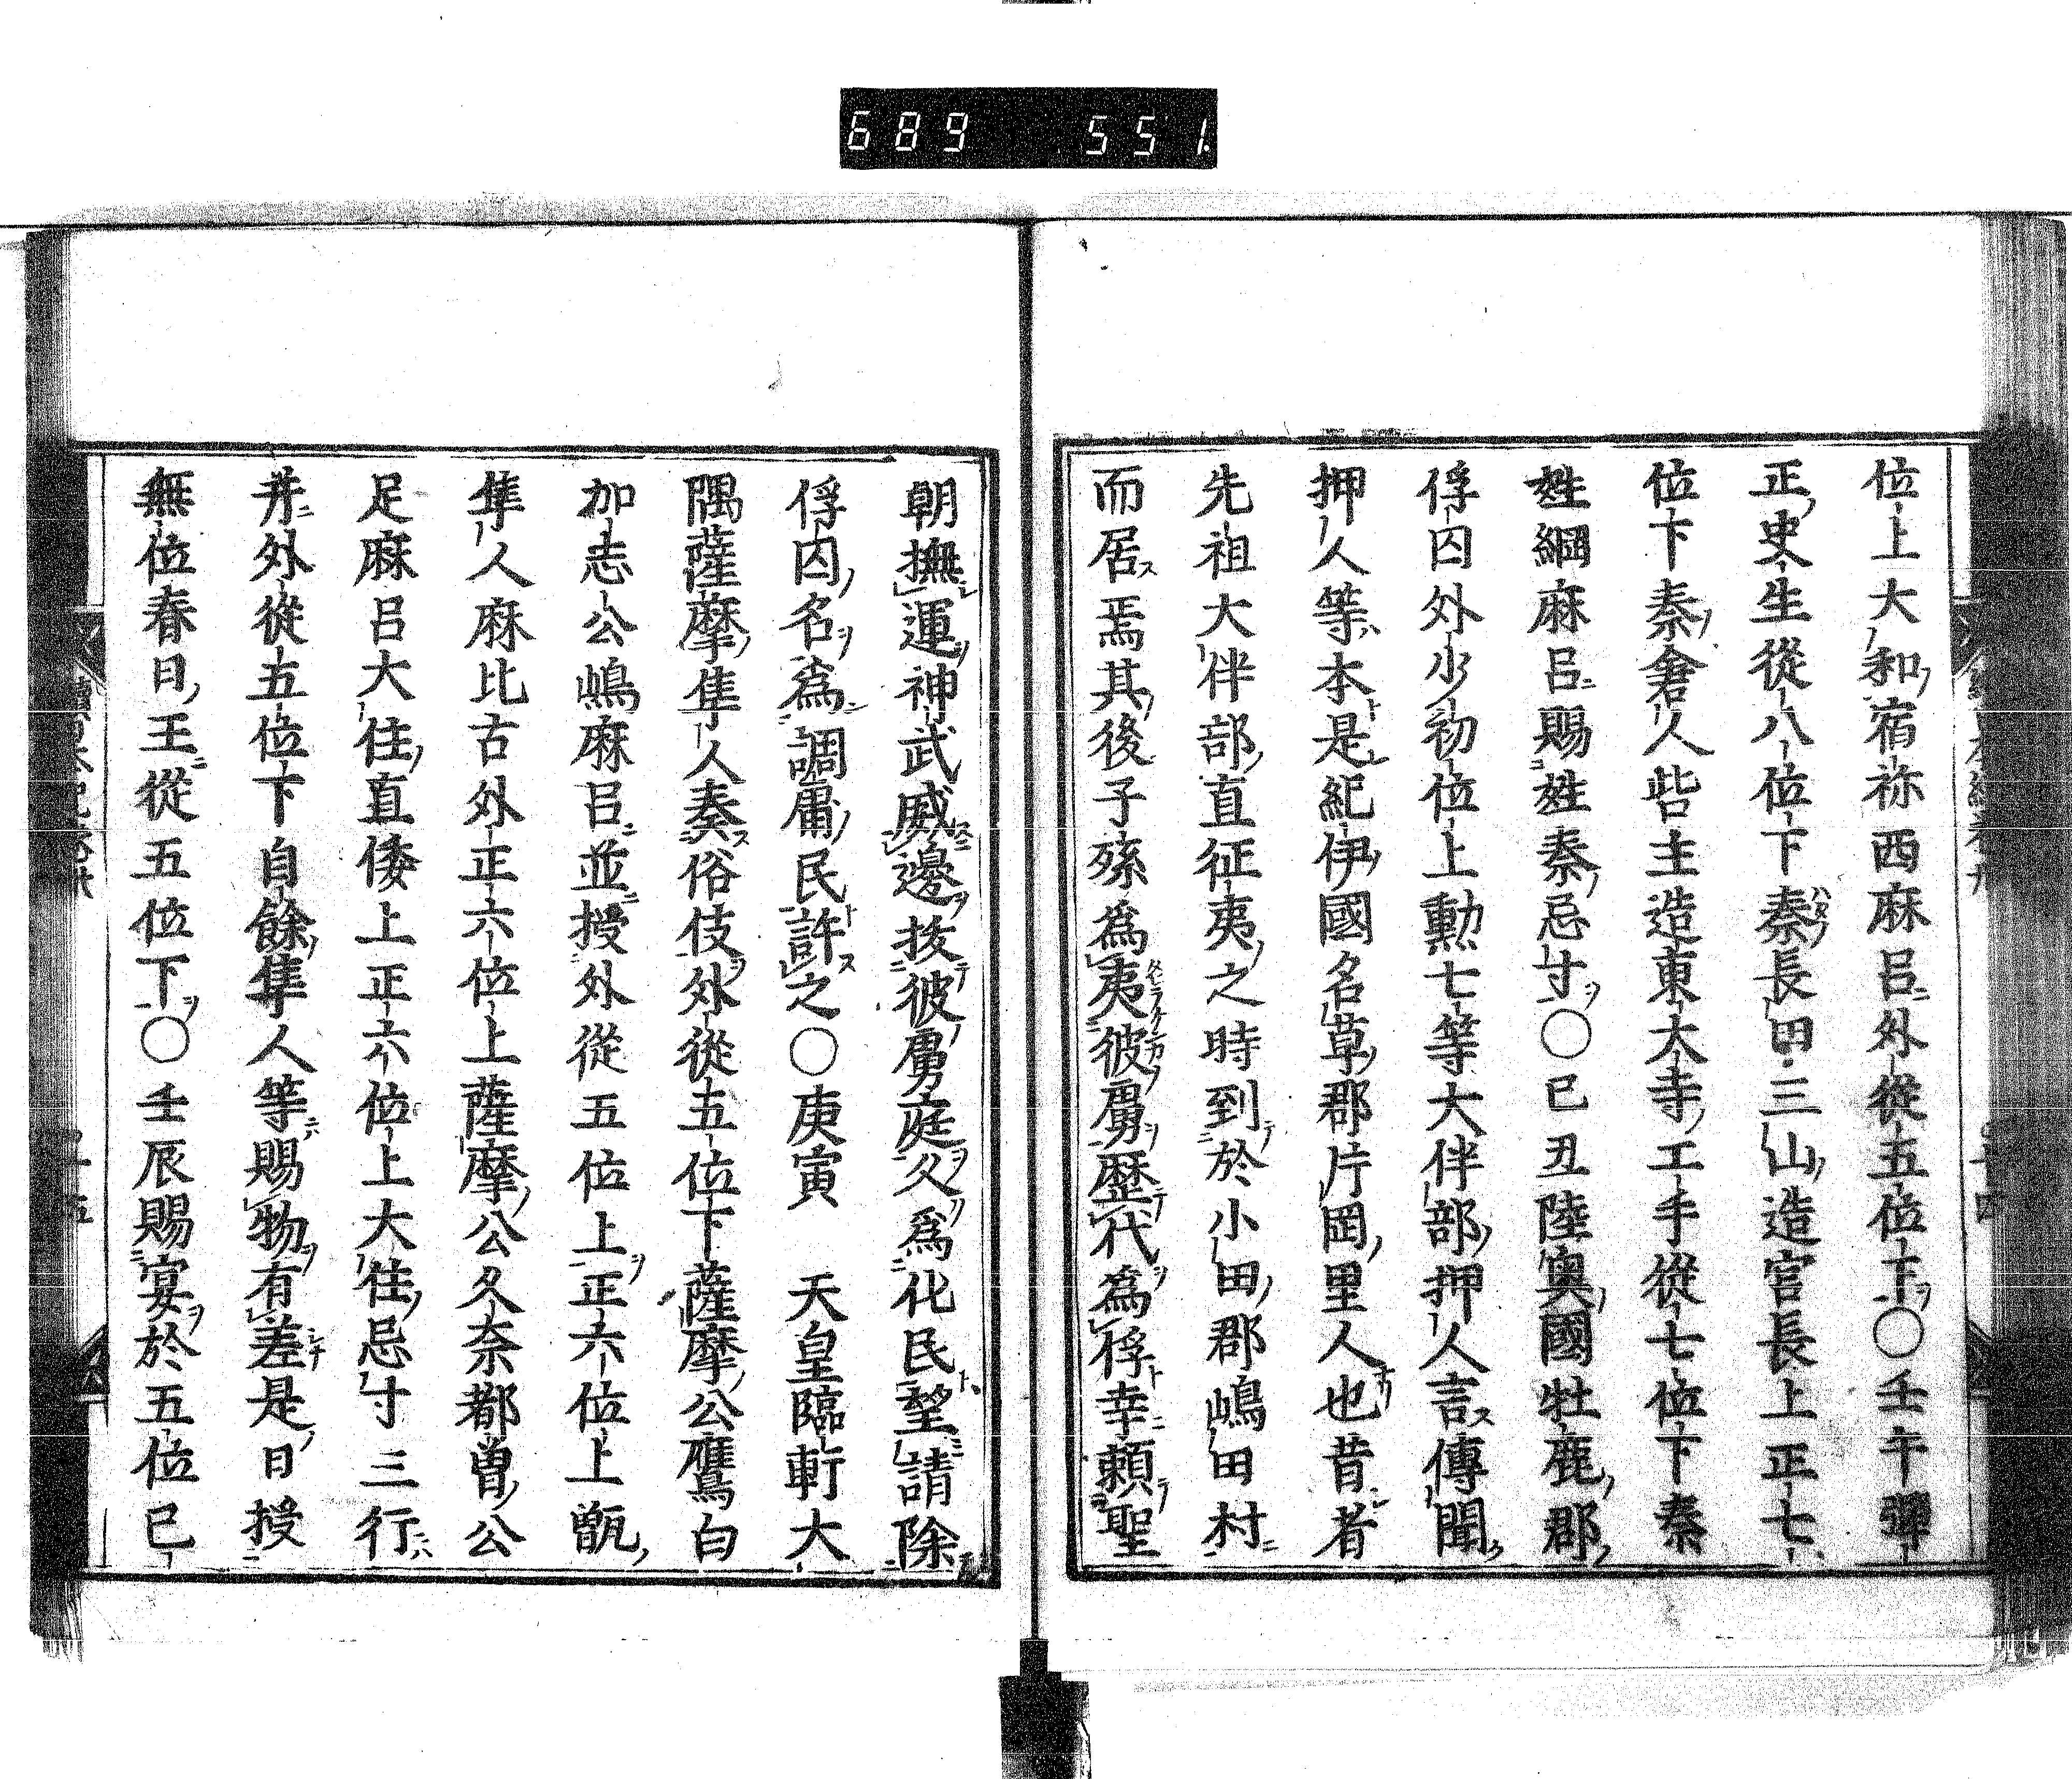 689 551.
位上大和宿祢西麻呂外從五位下〇壬午彈
正史生從八位下秦長田三山造官長上正七
位下秦倉人呰主造東大寺工手從七位下秦
姓綱麻呂賜姓秦忌寸〇已丑陸奥國牡鹿郡
俘囚外少初位上勳七等大伴部押人言傳聞
押人等本是紀伊國名草郡片岡里人也昔者
先祖大伴部直征夷之時到於小田郡嶋田村
而居焉其後子孫爲夷彼虜歷代爲俘幸頼聖
朝撫運神武威邊拔彼虜庭久爲化民望請除
俘囚名爲調庸民許之〇庚寅 天皇臨軒大
隅薩摩隼人奏俗伎外從五位下薩摩公鷹白
加志公嶋麻呂並授外從五位上正六位上甑
隼人麻比古外正六位上薩摩公久奈都曽公
足麻呂大住直倭上正六位上大住忌寸三行
并外從五位下自餘隼人等賜物有差是日授
無位春日王從五位下〇壬辰賜宴於五位已